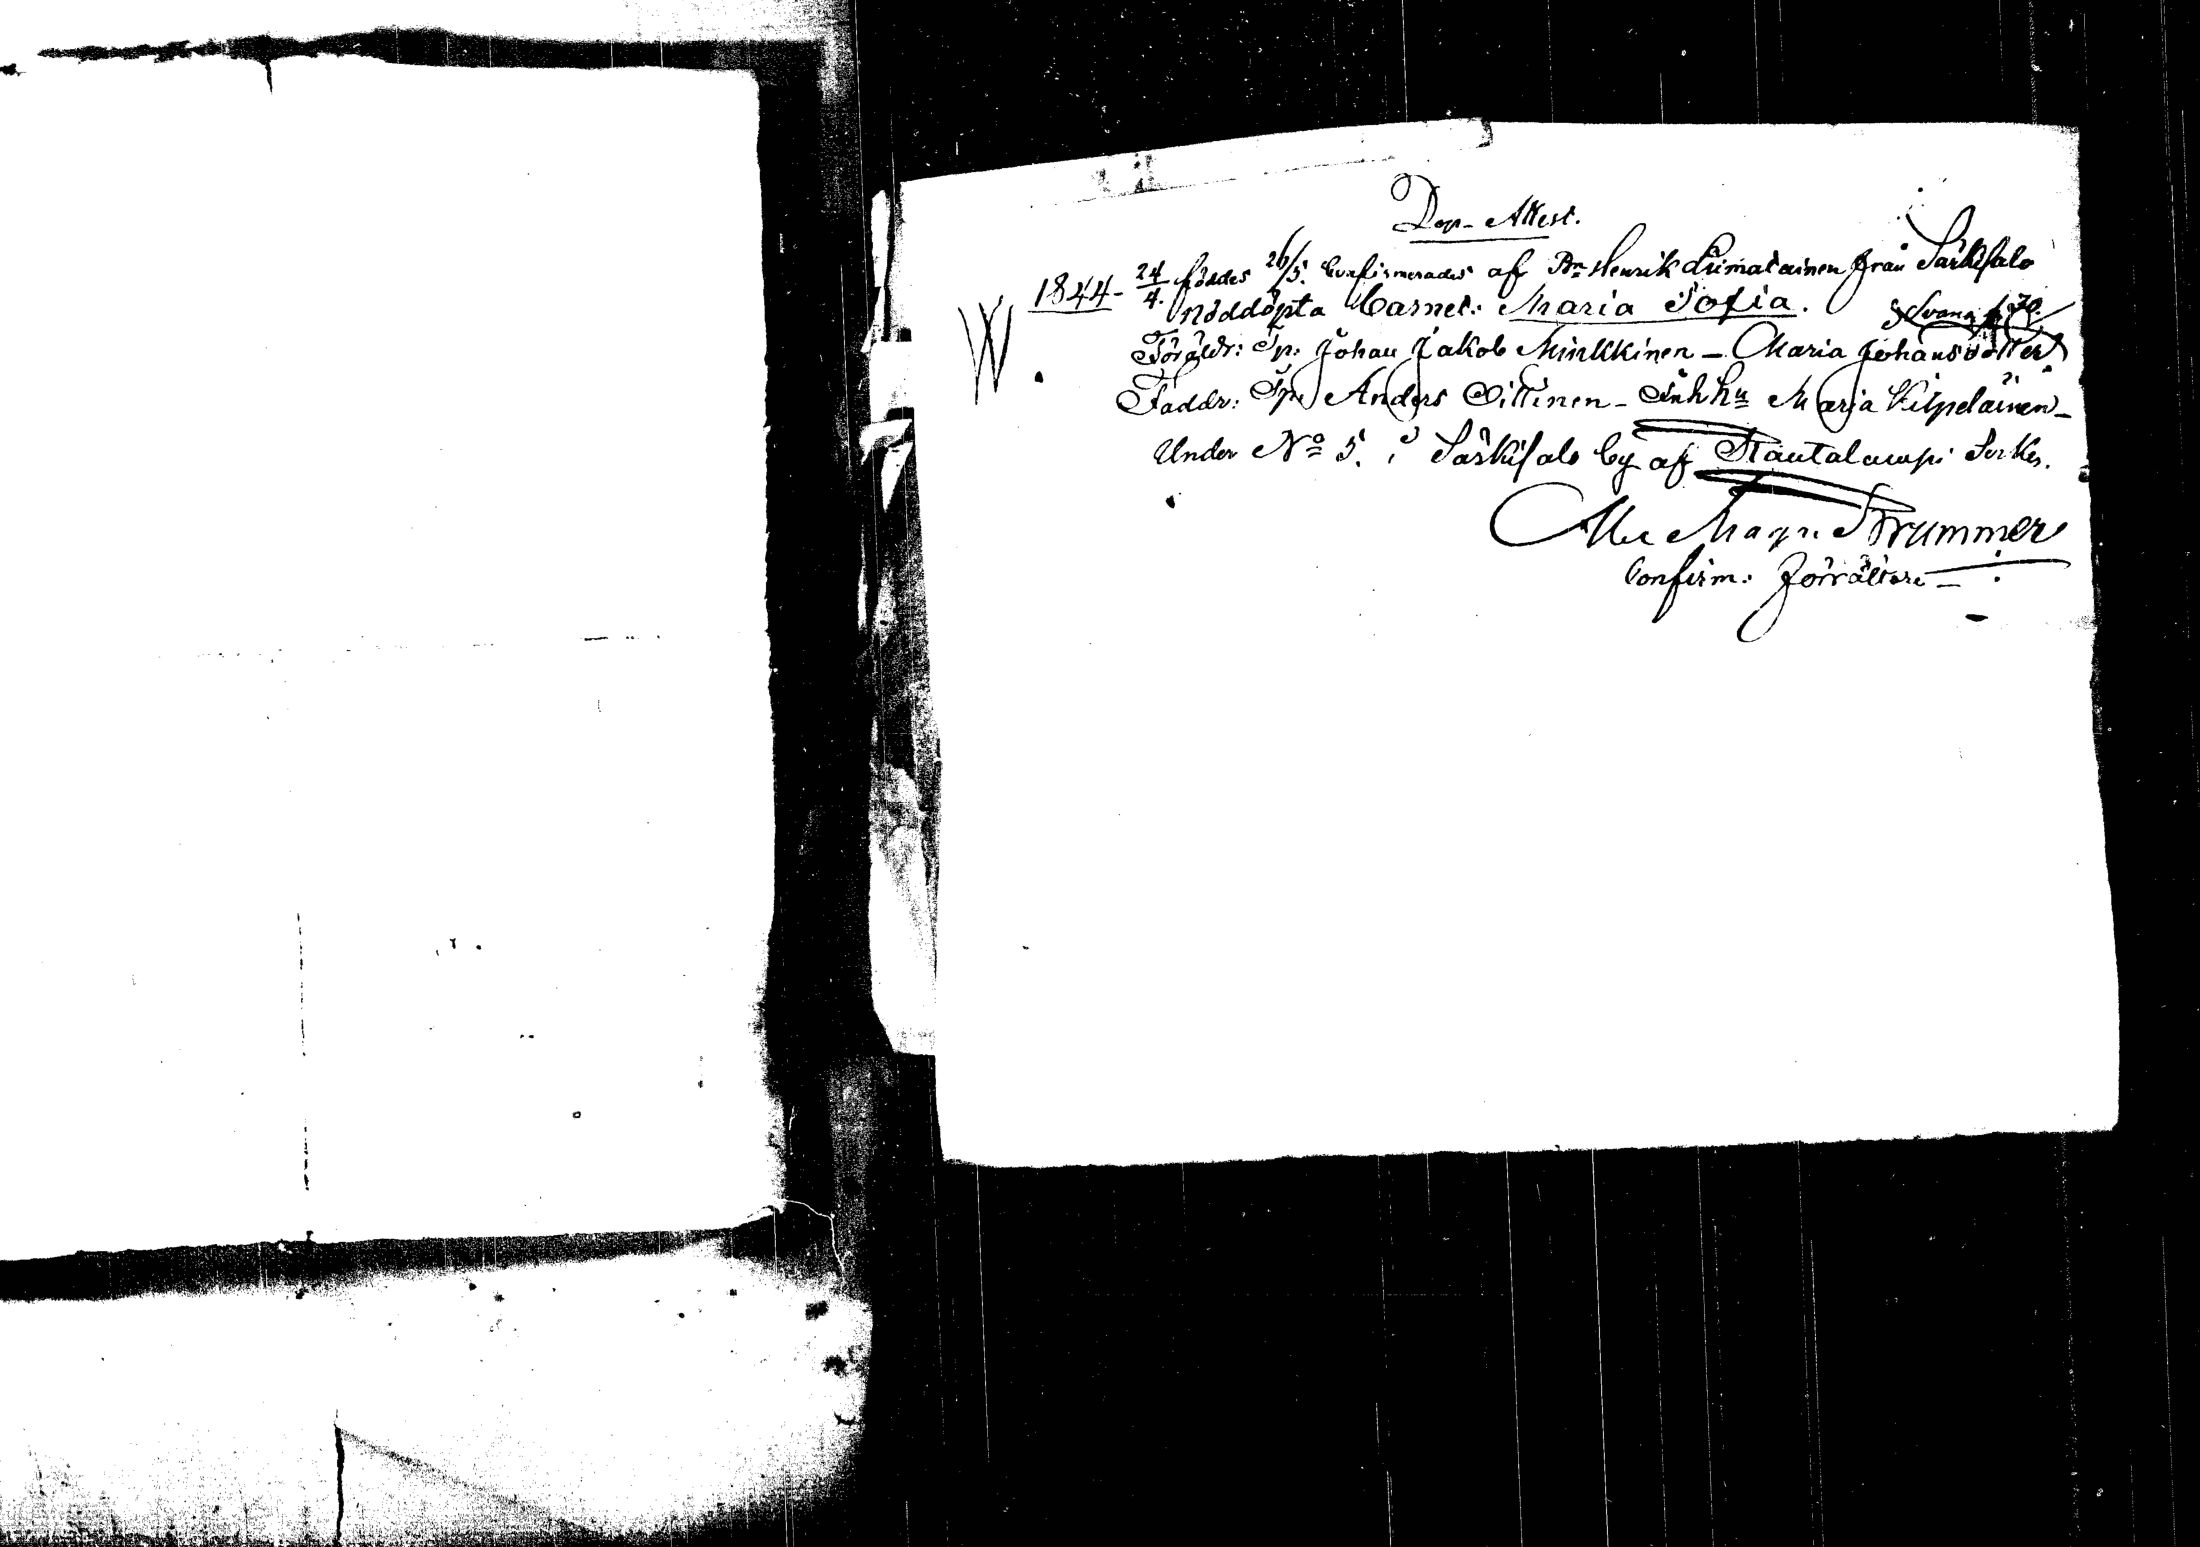 Dop-Attest.
1844- 24/4. föddes 26/5. Confirmerades af Bn Henrik Liimatainen från Särkisalo
nöddöpta barnet: Maria Sofia.
Föräldr: Tp: Johan Jakob Minkkinen - Maria Johansdotter
Faddr: Tp: Anders Tittinen - Inhhu Maria Kilpeläinen -
Under No 5. i Särkisalo by af Rautalampi Socken.
Magn: Brummer
Confirm: förrättare -